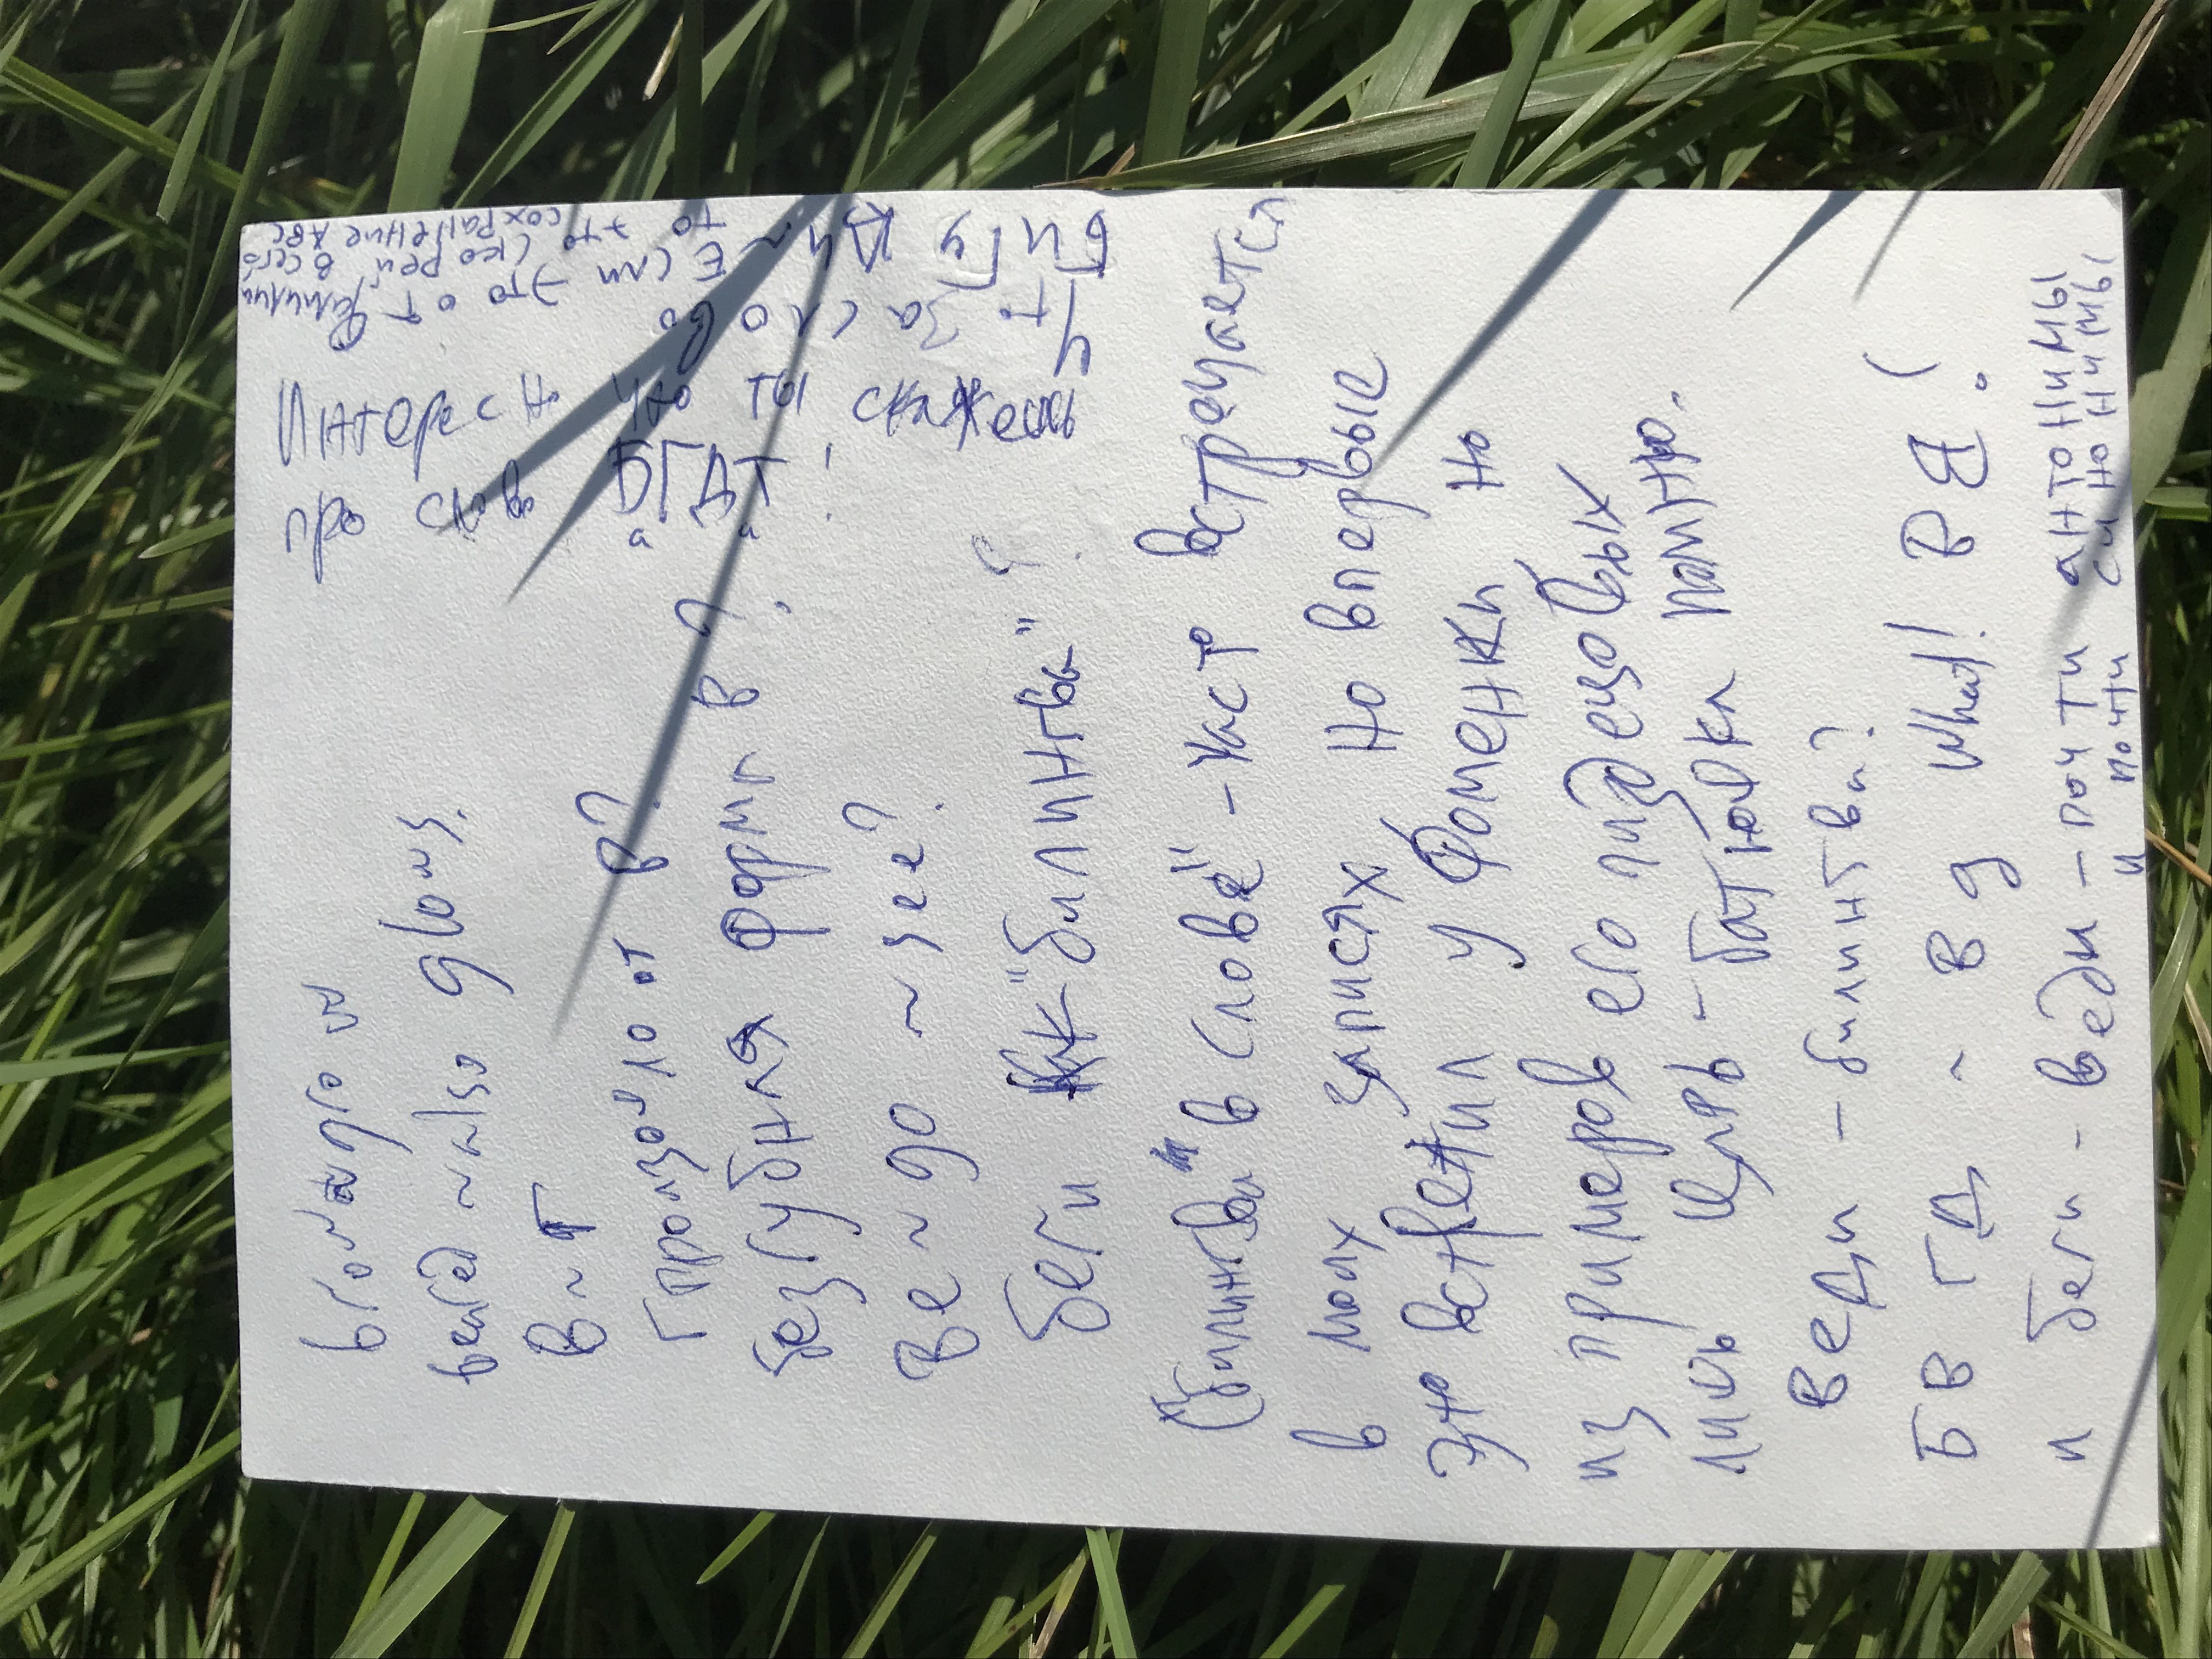 brow ~ grow
beared ~ also glows.
В ~ Г
Г произошло от В?
безгубная форма В?
Be ~ go ~ see?
беги как "билингва"?
("билингва" в слове" – часто встречается
в моих записях, но впервые
это встретил у Фоменки, но
из примеров его пиздецовых
лишь царь-батюшка помню.
Веди – билингва?
БВ ГД ~ В д What! В B!
и беги – веди – почти антонимы
и почти синонимы
ты скажешь
за слово
БиГуДи ~ Если это от фамилии
то это скорей всего
это сохранение ABC